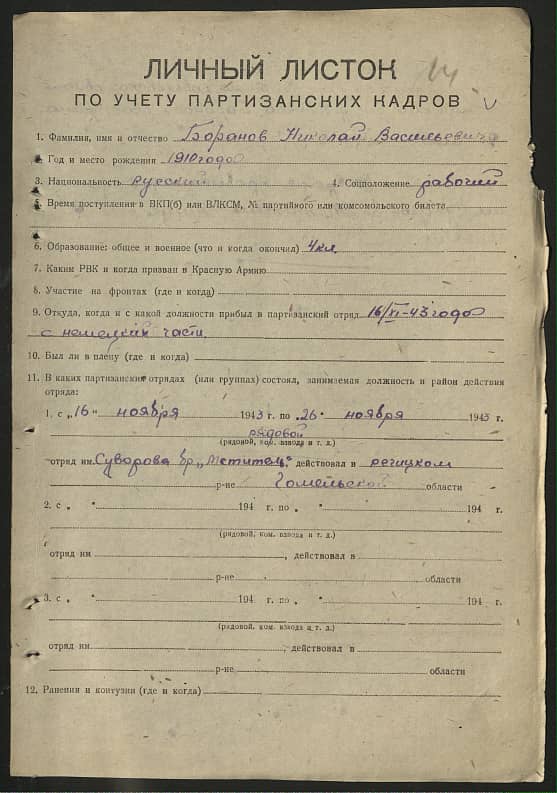 14
ЛИЧНЫЙ ЛИСТОК
ПО УЧЕТУ ПАРТИЗАНСКИХ КАДРОВ
1. Фамилия, имя и отчество Боранов Николай Васильевич
2. Год и место рождения 1910 года
3. Национальность русский 4. Соцположение рабочий
5. Время поступления в ВКП(б) или ВЛКСМ, № партийного или комсомольского билета
6. Образование: общее и военное (что и когда окончил) 4 кл
7. Каким РВК и когда призван в Красную Армию
8. Участие на фронтах (где и когда)
9. Откуда, когда и с какой должности прибыл в партизанский отряд 16/XI-43 года
с немецкий части
10. Был ли в плену (где и когда)
11. В каких партизанских отрядах (или группах) состоял, занимаемая должность и район действия
отряда:
1. с „16" ноября 1943 г. по „26" ноября 1943 г.
рядовой
(рядовой, ком. взвода и т. д.)
отряд им. Суворова бр „Мститель" действовал в речицком
р-не Гомельской области
2. с „ " 194 г. по „ " 194 г.
(рядовой, ком. взвода и т. д.)
отряд им , действовал в
р-не области
3. с „ " 194 г. по „ " 194 г.
(рядовой, ком. взвода и т. д.)
отряд им. , действовал в
р-не области
12. Ранения и контузии (где и когда)